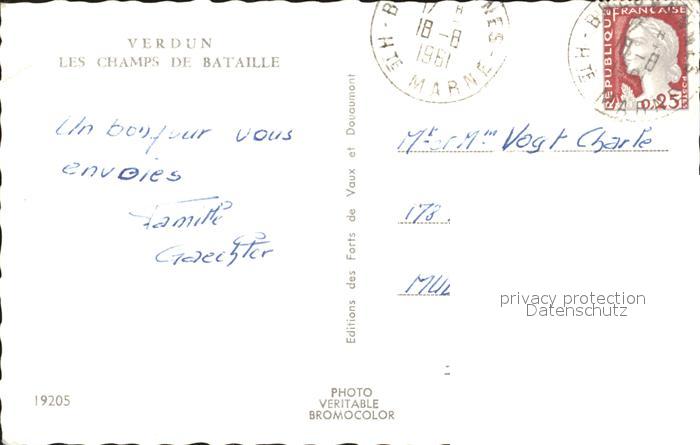 VERDUN
LES CHAMPS DE BATAILLE
Un bonjour vous
envoies
Famille
Gaechter
19205
Editions des Forts de Vaux et Douaumont
PHOTO
VERITABLE
BROMOCOLOR
17 H
18 -8
1961
HTE MARNE
REPUBLIQUE FRANÇAISE
0,25
18 -8
HTE MARNE
Mr et Mme Vogt Charle
173
MUL
privacy protection
Datenschutz